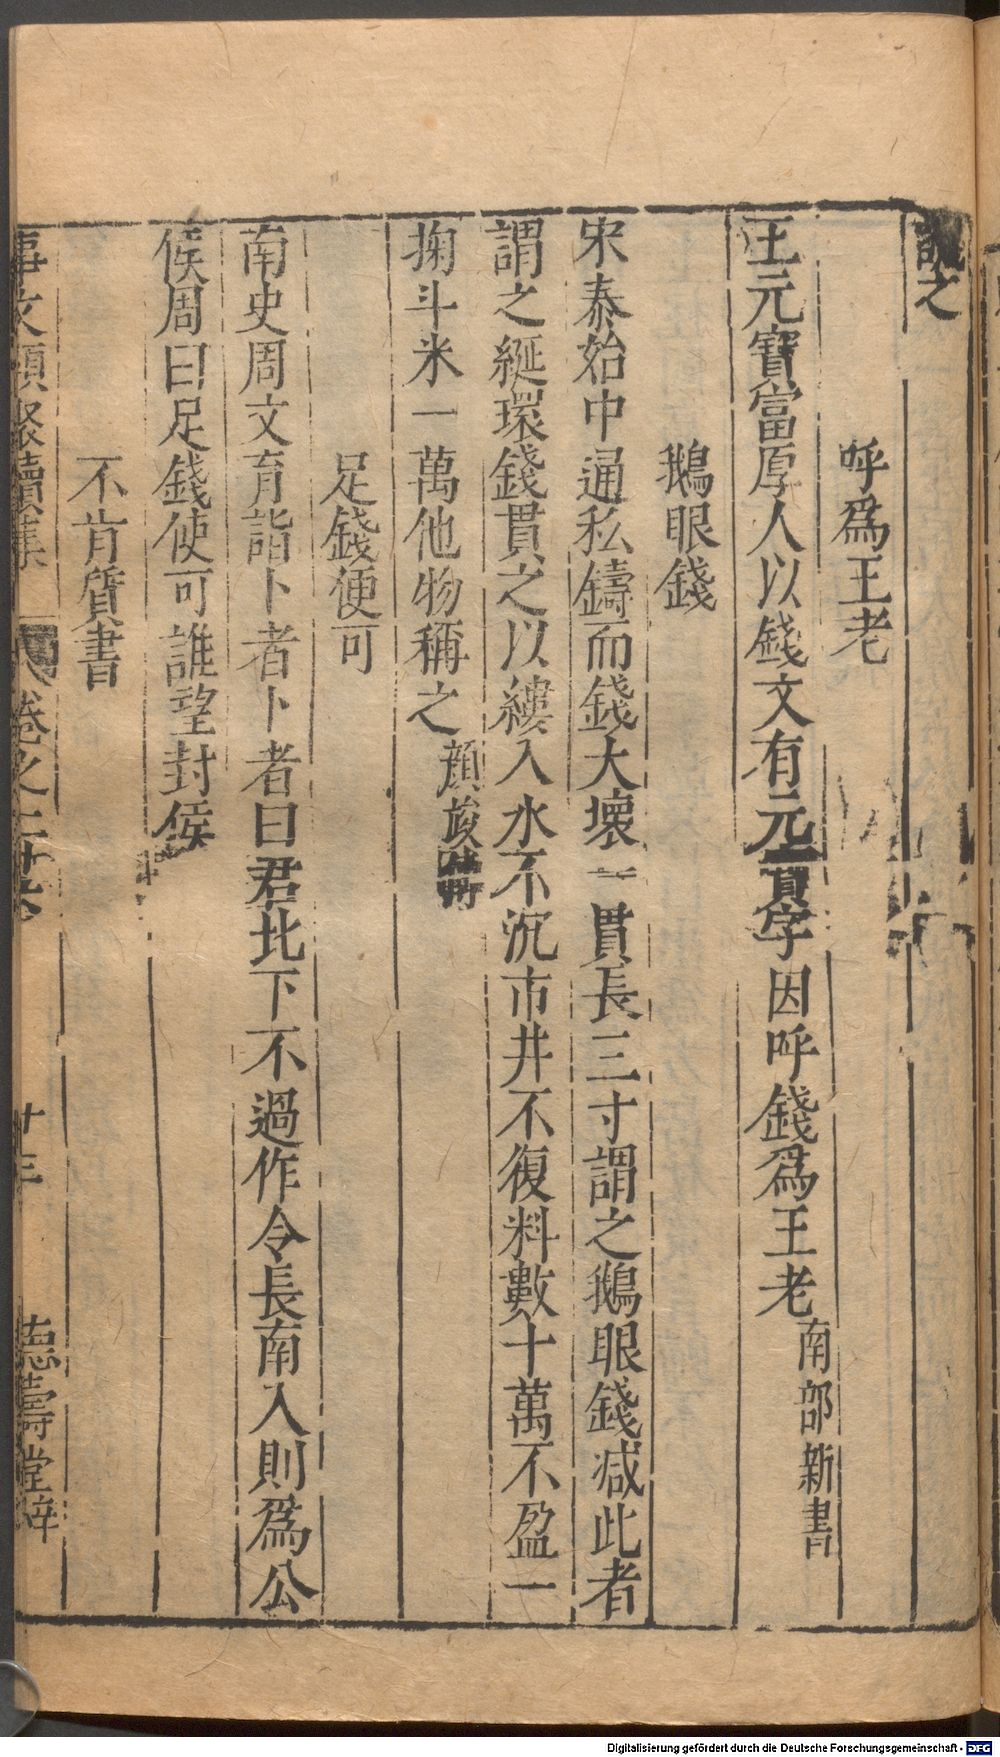 之
呼爲王老
王元寶富厚人以錢文有元寳字因呼錢爲王老南部新書
鵝眼錢
宋泰始中通私鑄而錢大壞一貫長三寸謂之鵝眼錢减此者
謂之綖環錢貫之以縷入水不沉市井不復料數十萬不盈一
掬斗米一萬他物稱之顔竣傳
足錢便可
南史周文育詣卜者卜者曰君比下不過作令長南入則爲公
侯周曰足錢使可誰望封侯
不肯質書
事文類聚續集 卷之二十六 廿三 德壽堂梓
Digitalisierung gefördert durch die Deutsche Forschungsgemeinschaft - DFG